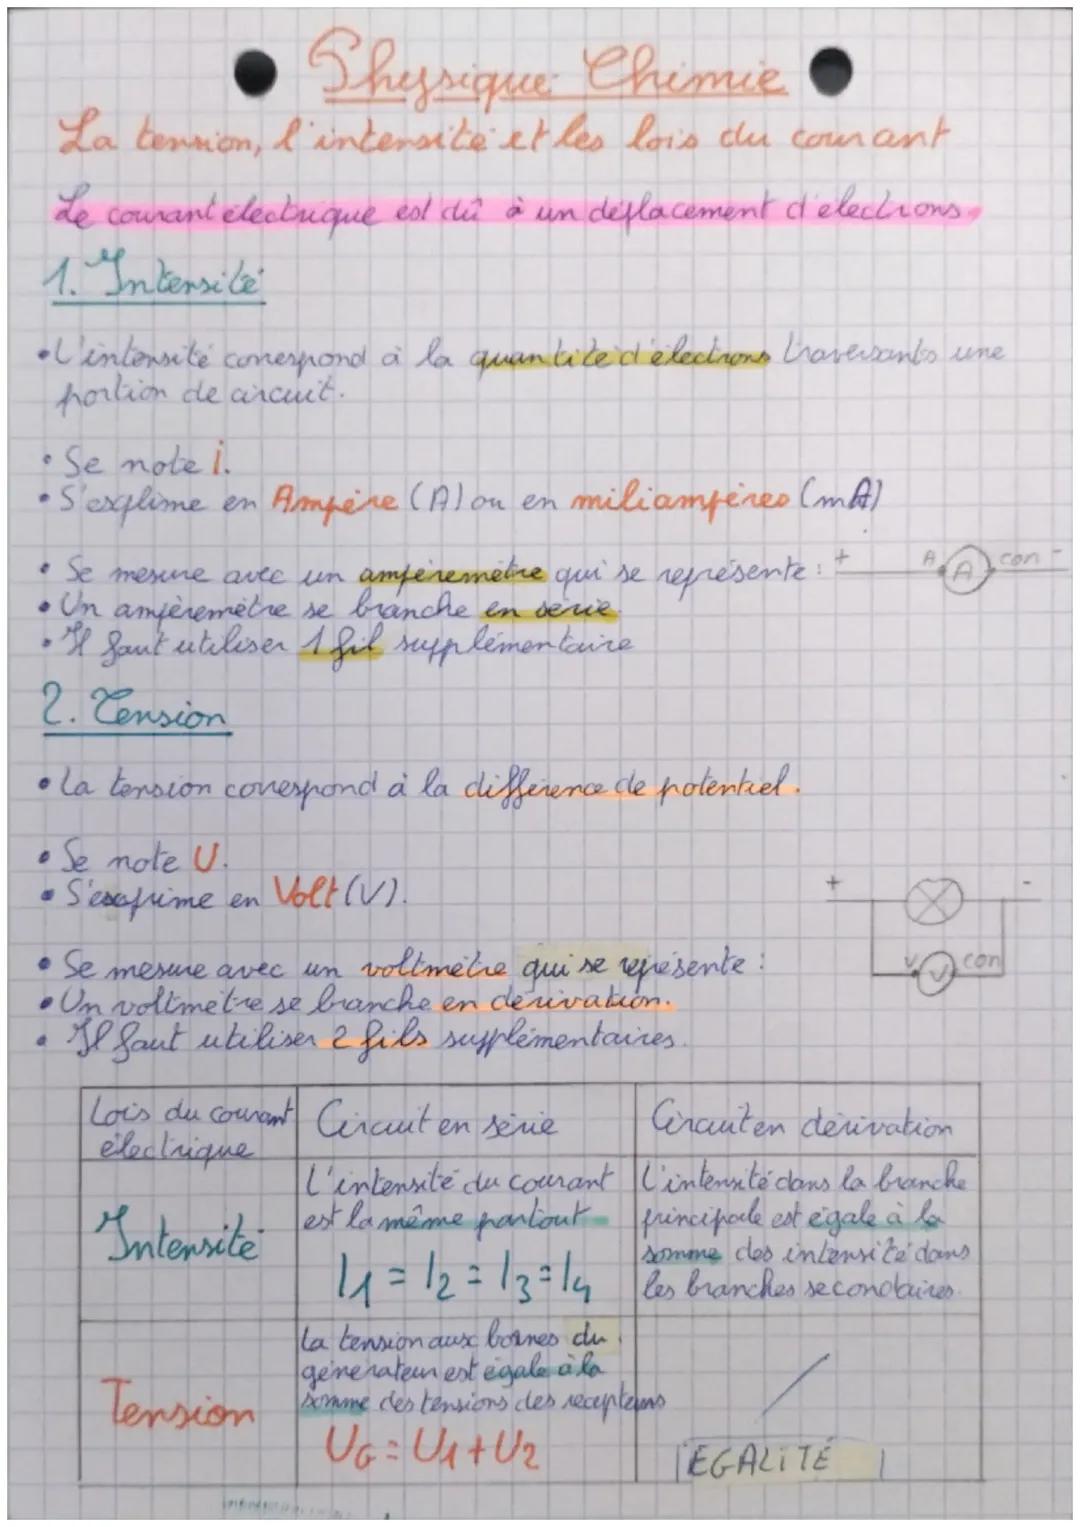 Physique Chimie
La tension, l'intensité et les lois du courant
Le courant électrique est dû à un déplacement d'électrons.
1. Intensité
•L'intensité correspond à la quantité d'électrons traversants une
portion de circuit.
• Se note i.
• S'explime en Ampère (A) ou en miliampères (mA)
• Se mesure avec un ampèremètre qui se représente : + A A con -
• Un ampèremètre se branche en série.
• Il faut utiliser 1 fil supplémentaire
2. Tension
• La tension correspond à la différence de potentiel.
• Se note U.
• S'exprime en Volt (V).
+ -
• Se mesure avec un voltmètre qui se représente : V V con
• Un voltmètre se branche en dérivation.
• Il faut utiliser 2 fils supplémentaires.
Lois du courant électrique
Circuit en série
Circuit en dérivation
Intensité
L'intensité du courant
est la même partout
I1 = I2 = I3 = I4
L'intensité dans la branche
principale est égale à la
somme des intensité dans
les branches secondaires.
Tension
La tension aux bornes du
générateur est égale à la
somme des tensions des recepteurs
UG = U1 + U2
EGALITÉ